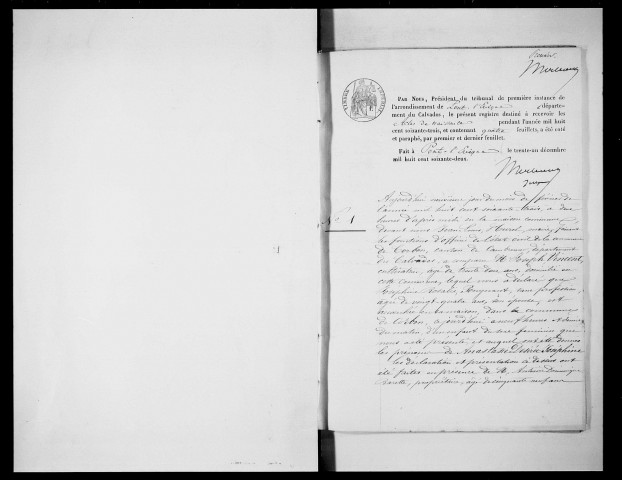 Premier
PAR NOUS, Président du tribunal de première instance de
l'arrondissement de Pont-l'Evêque, départe-
ment du Calvados, le présent registre destiné à recevoir les
Actes de naissance pendant l'année mil huit
cent soixante-trois, et contenant quatre feuillets, a été coté
et paraphé, par premier et dernier feuillet.
Fait à Pont-l'Evêque, le trente-un décembre
mil huit cent soixante-deux.
N° 1
Aujourd'hui jour du mois de
l'année mil huit cent soixante trois, à deux
heures d'après midi en la maison commune,
devant nous maire, faisant
les fonctions d'officier de l'état civil de la commune
de Corbon, canton de Cambremer, département
du Calvados, a comparu Mr Joseph Vincent,
cultivateur, âgé de trente deux ans, domicilié en
cette commune, lequel nous a déclaré que
Joséphine Rosalie, sans profession,
âgée de vingt-quatre ans, son épouse, est
accouchée en sa maison, dans la commune
de Corbon, aujourd'hui à heures
du matin d'un enfant de sexe féminin que
nous a été présenté et auquel ont été donnés
les prénoms de Anastasie Désirée Joséphine
les déclaration et présentation ci dessus ont
été faites en présence de M. Antoine Dominique
propriétaire, âgé de cinquante neuf ans